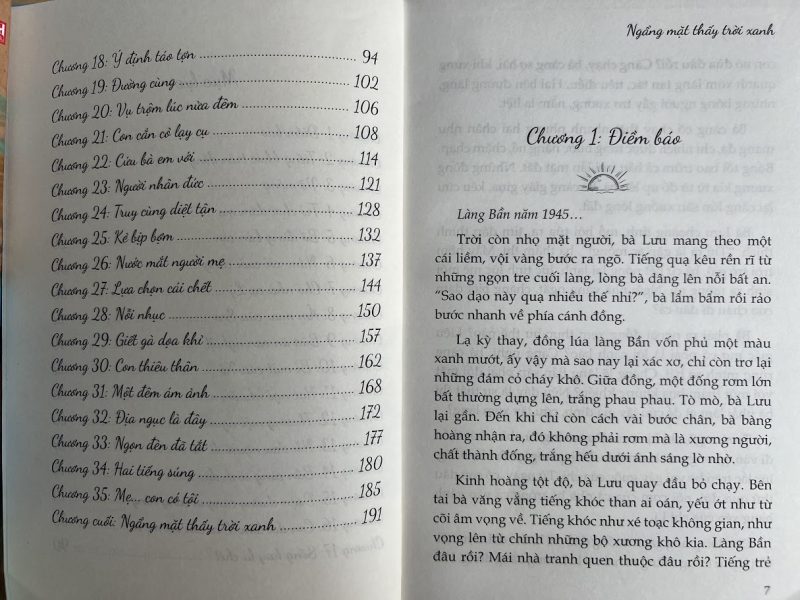 Chương 18: Ý định táo tợn 94
Chương 19: Đường cùng 102
Chương 20: Vụ trộm lúc nửa đêm 106
Chương 21: Con cắn cỏ lạy cụ 108
Chương 22: Cứu bà em với 114
Chương 23: Người nhân đức 121
Chương 24: Truy cùng diệt tận 128
Chương 25: Kẻ bịp bợm 132
Chương 26: Nước mắt người mẹ 137
Chương 27: Lựa chọn cái chết 144
Chương 28: Nỗi nhục 150
Chương 29: Giết gà dọa khỉ 157
Chương 30: Con thiêu thân 162
Chương 31: Một đêm ám ảnh 168
Chương 32: Địa ngục là đây 172
Chương 33: Ngọn đèn đã tắt 177
Chương 34: Hai tiếng súng 180
Chương 35: Mẹ... con có tội 185
Chương cuối: Ngẩng mặt thấy trời xanh 191
Ngẩng mặt thấy trời xanh
Chương 1: Điềm báo
Làng Bần năm 1945…
Trời còn nhọ mặt người, bà Lưu mang theo một
cái liềm, vội vàng bước ra ngõ. Tiếng quạ kêu rền rĩ từ
những ngọn tre cuối làng, lòng bà dâng lên nỗi bất an.
“Sao dạo này quạ nhiều thế nhỉ?”, bà lẩm bẩm rồi rảo
bước nhanh về phía cánh đồng.
Lạ kỳ thay, đồng lúa làng Bần vốn phủ một màu
xanh mướt, ấy vậy mà sao nay lại xác xơ, chỉ còn trơ lại
những đám cỏ cháy khô. Giữa đồng, một đống rơm lớn
bất thường dựng lên, trắng phau phau. Tò mò, bà Lưu
lại gần. Đến khi chỉ còn cách vài bước chân, bà bàng
hoàng nhận ra, đó không phải rơm mà là xương người,
chất thành đống, trắng hếu dưới ánh sáng lờ nhờ.
Kinh hoàng tột độ, bà Lưu quay đầu bỏ chạy. Bên
tai bà văng vẳng tiếng khóc than ai oán, yếu ớt như từ
cõi âm vọng về. Tiếng khóc như xé toạc không gian, như
vọng lên từ chính những bộ xương khô kia. Làng Bần
đâu rồi? Mái nhà tranh quen thuộc đâu rồi? Tiếng trẻ
7